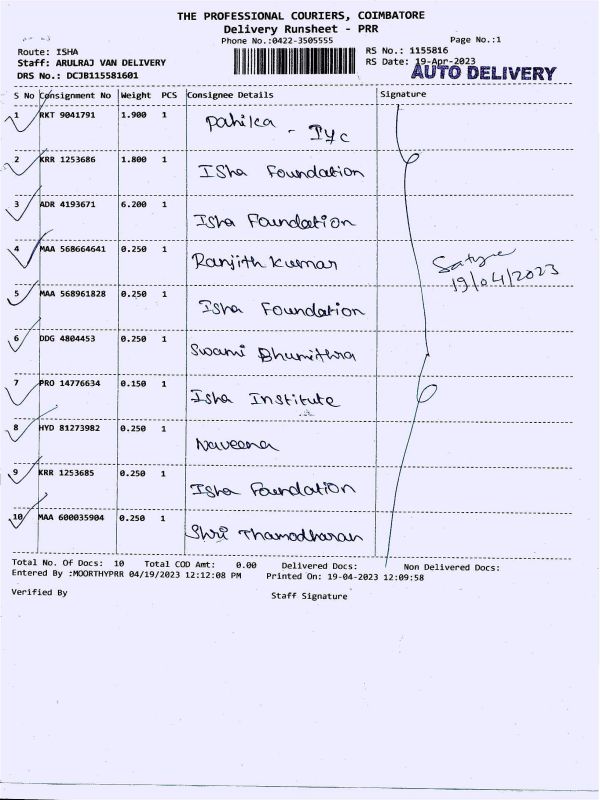 THE PROFESSIONAL COURIERS, COIMBATORE
Delivery Runsheet - PRR
Phone No.:0422-3505555
Page No.:1
Route: ISHA
RS No.: 1155816
Staff: ARULRAJ VAN DELIVERY
RS Date: 19-Apr-2023
DRS No.: DCJB115581601
AUTO DELIVERY
S No Consignment No Weight PCS Consignee Details Signature
1 RKT 9041791 1.900 1 Pahilca - Iyc
2 KRR 1253686 1.800 1 Isha Foundation
3 ADR 4193671 6.200 1 Isha Foundation
4 MAA 568664641 0.250 1 Ranjith Kumar
5 MAA 568961828 0.250 1 Isha Foundation
6 DDG 4804453 0.250 1 Swami Bhumithra
7 PRO 14776634 0.150 1 Isha Institute
8 HYD 81273982 0.250 1 Naveena
9 KRR 1253685 0.250 1 Isha Foundation
10 MAA 600035904 0.250 1 Shri Thamodharan
19/04/2023
Total No. Of Docs: 10 Total COD Amt: 0.00 Delivered Docs: Non Delivered Docs:
Entered By :MOORTHYPRR 04/19/2023 12:12:08 PM Printed On: 19-04-2023 12:09:58
Verified By
Staff Signature